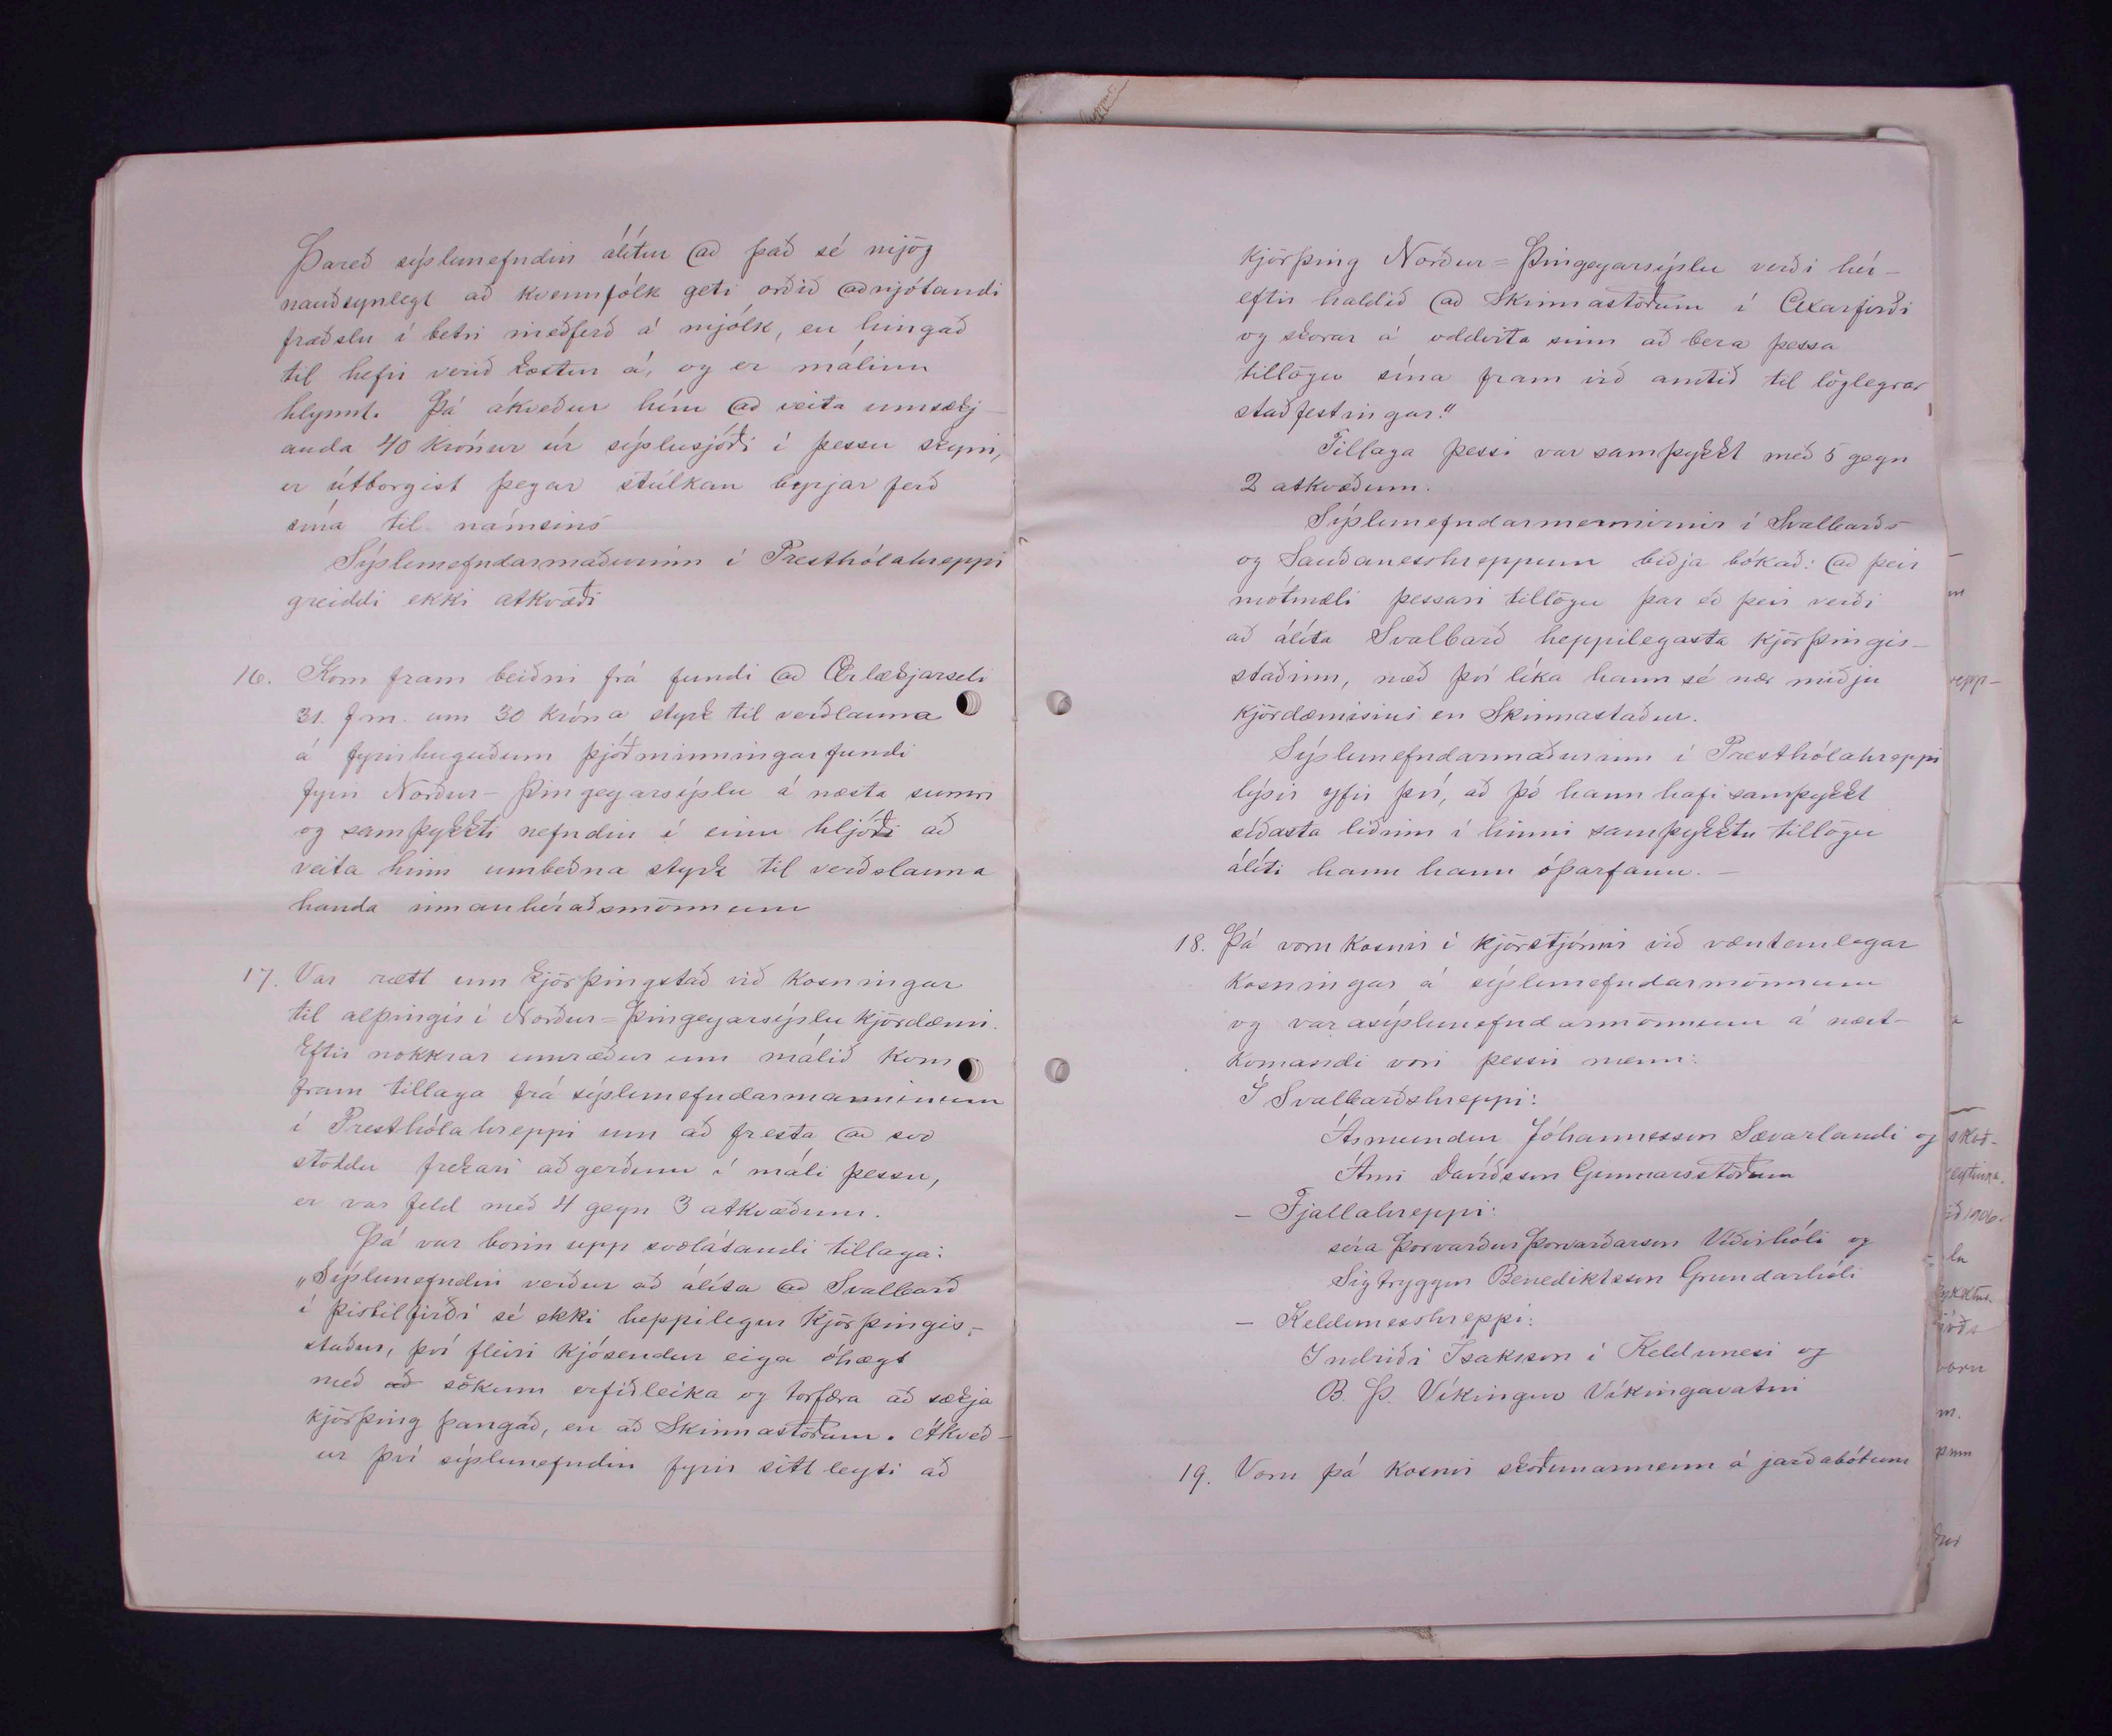 Þareð sýslunefndin álítur að það sé mjög
nauðsynlegt að kvennfólk geti orðið aðnjótandi
fræðslu í betri meðferð á mjólk, en hingað
til hefir verið kostur á, og er málinu
hlynnt. Þá ákveður hún að veita umsækj-
anda 40 krónur úr sýslusjóði í þessu skyni,
er útborgist þegar stúlkan byrjar ferð
sína til námsins
Sýslunefndarmaðurinn í Presthólahreppi
greiddi ekki atkvæði
16. Kom fram beiðni frá fundi að Ærlækjarseli
31. f m. um 30 króna styrk til verðlauna
á fyrirhuguðum þjóðminningarfundi
fyrir Norður-Þingeyarsýslu á næsta sumri
og samþykkti nefndin í einu hljóði að
veita hinn umbeðna styrk til verðslauna
handa innanhéraðsmönnum
17. Var rætt um kjörþingstað við kosningar
til alþingis í Norður=Þingeyarsýslu kjördæmi.
Eftir nokkrar umræður um málið kom
fram tillaga frá sýslunefndarmanninum
í Presthólahreppi um að fresta að svo
stöddu frekari aðgerðum í máli þessu,
er var feld með 4 gegn 3 atkvæðum.
Þá var borin upp svolátandi tillaga:
„Sýslunefndin verður að álíta að Svalbarð
í Þistilfirði sé ekki heppilegur kjörþingis-
staður, því fleiri kjósendur eiga óhægt
með að sökum erfiðleika og torfæra að sækja
kjörþing þangað, en að Skinnastöðum. Ákveð-
ur því sýslunefndin fyrir sitt leyti að
kjörþing Norður=Þingeyarsýslu verði hér-
eftir haldið að Skinnastöðum í Axarfirði
og skorar á oddvita sinn að bera þessa
tillögu sína fram við amtið til löglegrar
staðfestingar."
Tillaga þessi var samþykkt með 5 gegn
2 atkvæðum.
Sýslunefndarmennirnir í Svalbarðs-
og Sauðanesshreppum biðja bókað: að þeir
mótmæli þessari tillögu þar eð þeir verði
að álíta Svalbarð heppilegasta kjörþingis-
staðinn, með því líka hann sé nær miðju
kjördæmisins en Skinnastaður.
Sýslunefndarmaðurinn í Presthólahreppi
lýsir yfir því, að þó hann hafi samþykkt
síðasta liðinn í hinni samþykktu tillögu
álíti hann hann óþarfann. -
18. Þá voru kosnir í kjörstjórnir við væntanlegar
kosningar á sýslunefndarmönnum
og varasýslunefndarmönnum á næst-
komandi vori þessir menn:
Í Svalbarðshreppi:
Ásmundur Jóhannesson Sævarlandi og
Árni Davíðsson Gunnarsstöðum
- Fjallahreppi:
séra Þorvarður Þorvarðarson Víðirhóli og
Sigtryggur Benediktsson Grundarhóli
- Keldunesshreppi:
Indriði Ísaksson í Keldunesi og
B. Þ. Víkingur Víkingavatni
19. Voru þá kosnir skoðunarmenn á jarðabótum